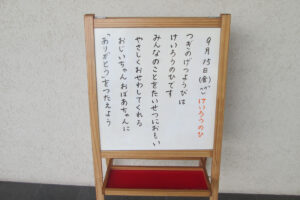 9月15日(金)けいろうのひ
つぎのげつようびは
けいろうのひです
みんなのことをたいせつにおもい
やさしくおせわしてくれる
おじいちゃんおばあちゃんに
「ありがとう」をつたえよう